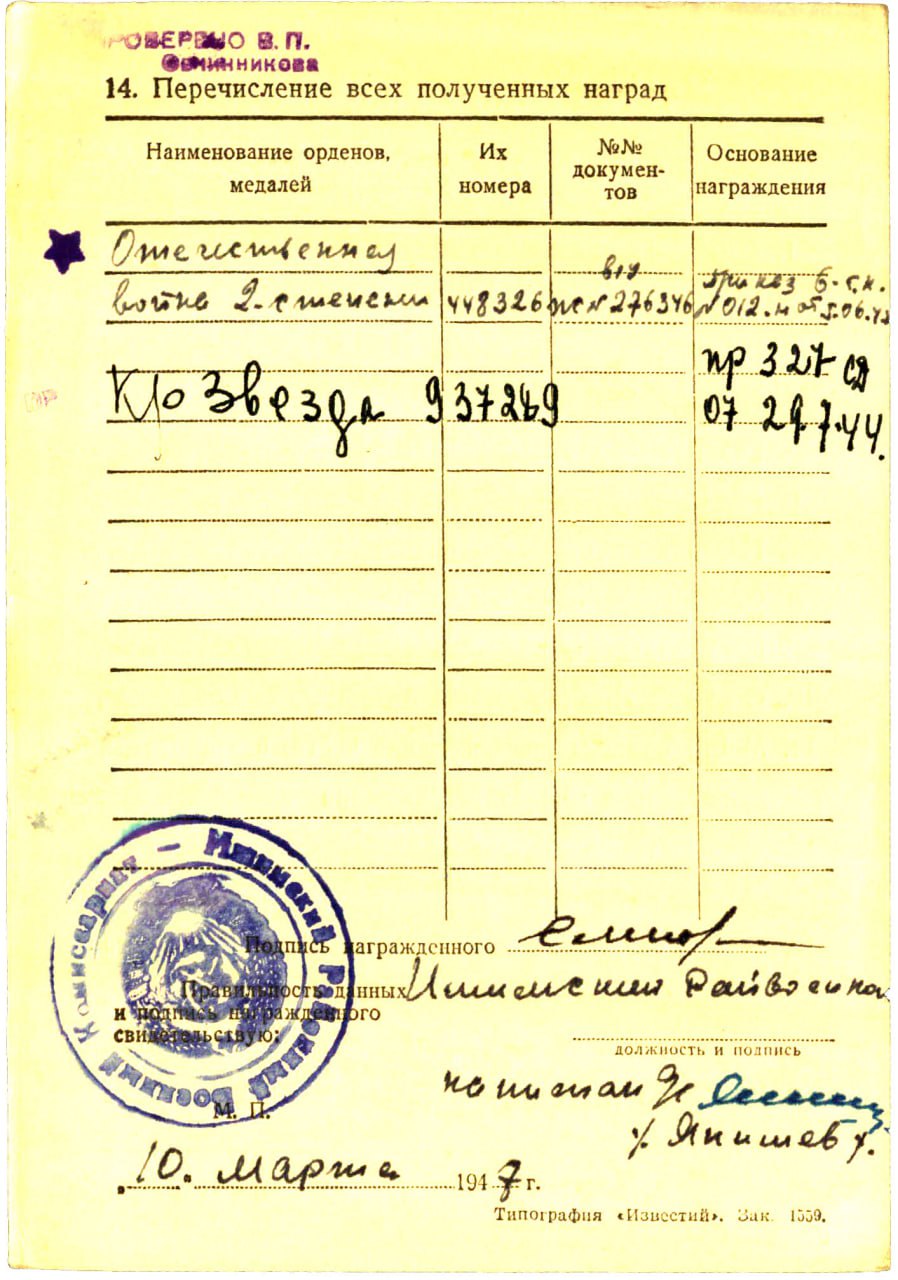 ПРОВЕРЕНО В. П.
Овчинникова
14. Перечисление всех полученных наград
Наименование орденов, медалей
Их номера
№№ докумен-тов
Основание награждения
Отечественная
война 2-степени 448326 № 276346 приказ 6-с.к.
№ 012-н от 5.06.43
Кр Звезда 937289 пр 327 сд
07 29.7.44.
Подпись награжденного
Правильность данных
и подпись награжденного
свидетельствую:
Ишимский Райвоенком
должность и подпись
капитан
Янишев
Ишимский Районный Военный Комиссариат
М. П.
10. Марта 1947 г.
Типография «Известий». Зак. 1559.